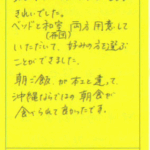 きれいでした。
ベッドと和室(布団)両方用意して
いただいて、好みの方を選ぶ
ことができました。
朝ご飯が和と違って
沖縄ならではの朝食が
食べられて良かったです。